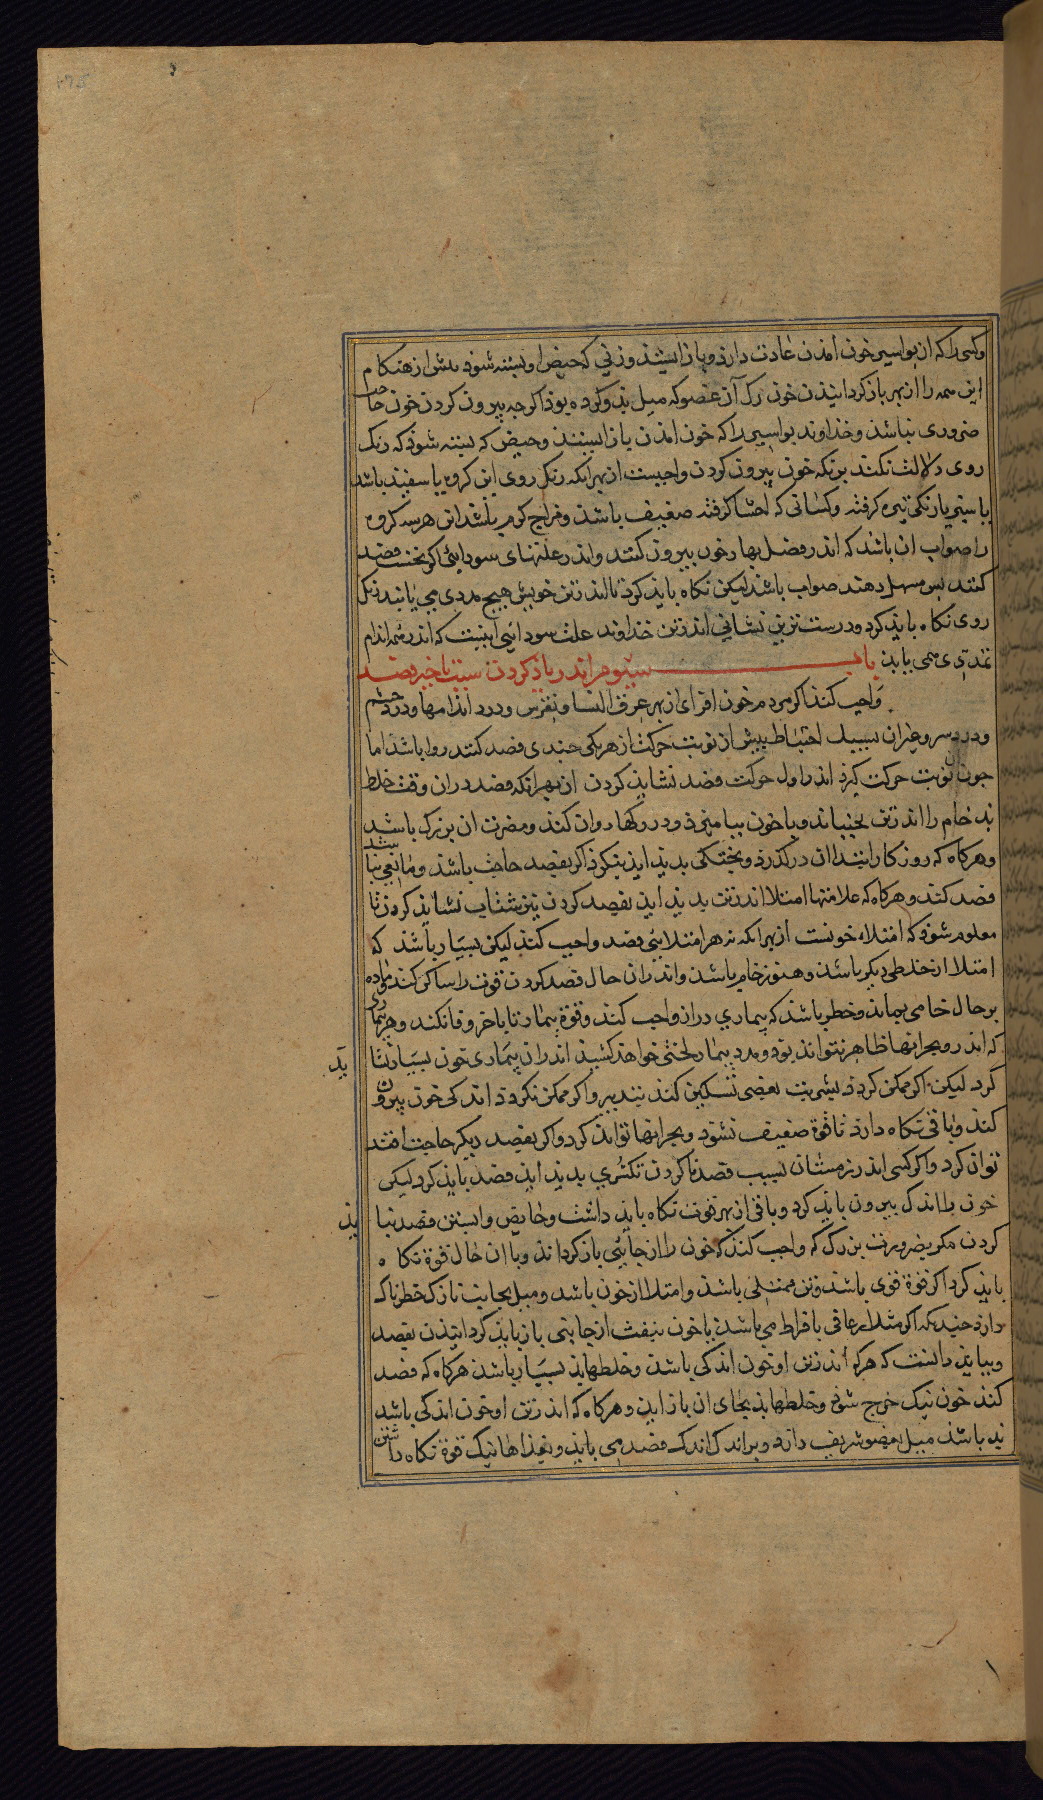 وکسی را که از بواسیر خون امدن عادت دارد و باز ایستد و زنی که حیض او بسته شود پیش از هنکام
این همه را از بهر باز کردانیدن خون رک آن عضو که میل بدو کرده بود اکرچه بیرون کردن خون حاجت
ضروری نباشد و خداوند بواسیر را که خون امدن باز ایستند و حیض که بسته شود که رنک
روی دلالت نکند برنکه خون بیرون کردن واجبست از بهر انکه رنک روی این کروه یا سفید باشد
با سبزی یا رنکی تیره کرفته وکسانی که احشا کرفته ضعیف باشد و مزاج کرم باشد این هر سه کروه
را صواب ان باشد که اندر فصل بهار خون بیرون کنند و اندر علتهای سودایی اکر نخست فصد
کنند بس مسهل دهند صواب باشد لیکن نکاه باید کرد تا اندر تن خویش هیچ مددی می یابند رنک
روی نکاه باید کرد و درست ترین نشانی اندر تن خداوند علت سودایی اینست که اندر همه اندام
تمددی می یابد باب سیوم اندر یاد کردن سبب تاخیر فصد
واجب کند اکر مردم خون افزای از بهر عرق النسا و نقرس و درد اندامها و درد چشم
و درد سر و جز ان بسبیل احتیاط پیش از نوبت حرکت از هر یکی چندی فصد کنند روا باشد اما
جون نوبت حرکت کیرد اندر اول حرکت فصد نشاید کردن از بهر انکه فصد در ان وقت خلط
بد خام را اندر تن بجنباند و با خون بیامیزد و در رکها روان کند و مضرت ان بزرک باشد
و هرکاه که روزکار ابتدا ان در کذرد و پختکی بدید اید بنکرد اکر بفصد حاجت باشد و مانعی نباشد
فصد کنند و هرکاه که علامتها امتلا اندر تن بدید اید بفصد کردن نیز شتاب نشاید کردن تا
معلوم شود که امتلاء خونست از بهر انکه نه هر امتلایی فصد واجب کند لیکن بسیار باشد که
امتلا از خلطی دیکر باشد و هنوز خام باشد و اندران حال فصد کردن قوت را ساکن کند ماده
بر حال خامی بماند و خطر باشد که بیماری دران واجب کند و قوة بیمار تا باخر وفا نکند و هر بیماری
که اندر و بحرانها ظاهر نتواند بود و مدد بیمار لختی خواهد کشید اندران بیماری خون بسیار نشاید
کرد لیکن اکر ممکن کردد بشربت بعضی تسکین کند تدبیر و اکر ممکن نکردد اندکی خون بیرون
کند و باقی نکاه دارد تا قوة ضعیف نشود و بحرانها تواند کرد و اکر بفصد دیکر حاجت افتد
توان کرد و اکر کسی اندر زمستان بسبب فصد ناکردن تکسری بدید اید فصد باید کرد لیکن
خون را اندک بیرون باید کرد و باقی از بهر قوت نکاه باید داشت و حایض و ابستن فصد نباید
کردن مکر بضرورت بزرک که واجب کند که خون را از جایی باز کرداند و با ان حال قوة نکاه
باید کرد اکر قوة قوی باشد و تن ممتلی باشد و امتلا از خون باشد و میل بجانبت نازک خطرناک
دارد جندانکه اکر مثلا رعافی بافراط می باشد یا خون بنفث از جایی باز باید کردانیدن بفصد
و بباید دانست که هرکه اندر تن او خون اندکی باشد و خلطها بد بسیار باشد هرکاه که فصد
کند خون نیک خرج شود و خلطها بد بجای ان باز اید و هرکاه که اندر تن او خون اندکی باشد
بد باشد میل بعضو شریف دارد و براندک اندک فصد می باید و بغذاها نیک قوة نکاه داشتن